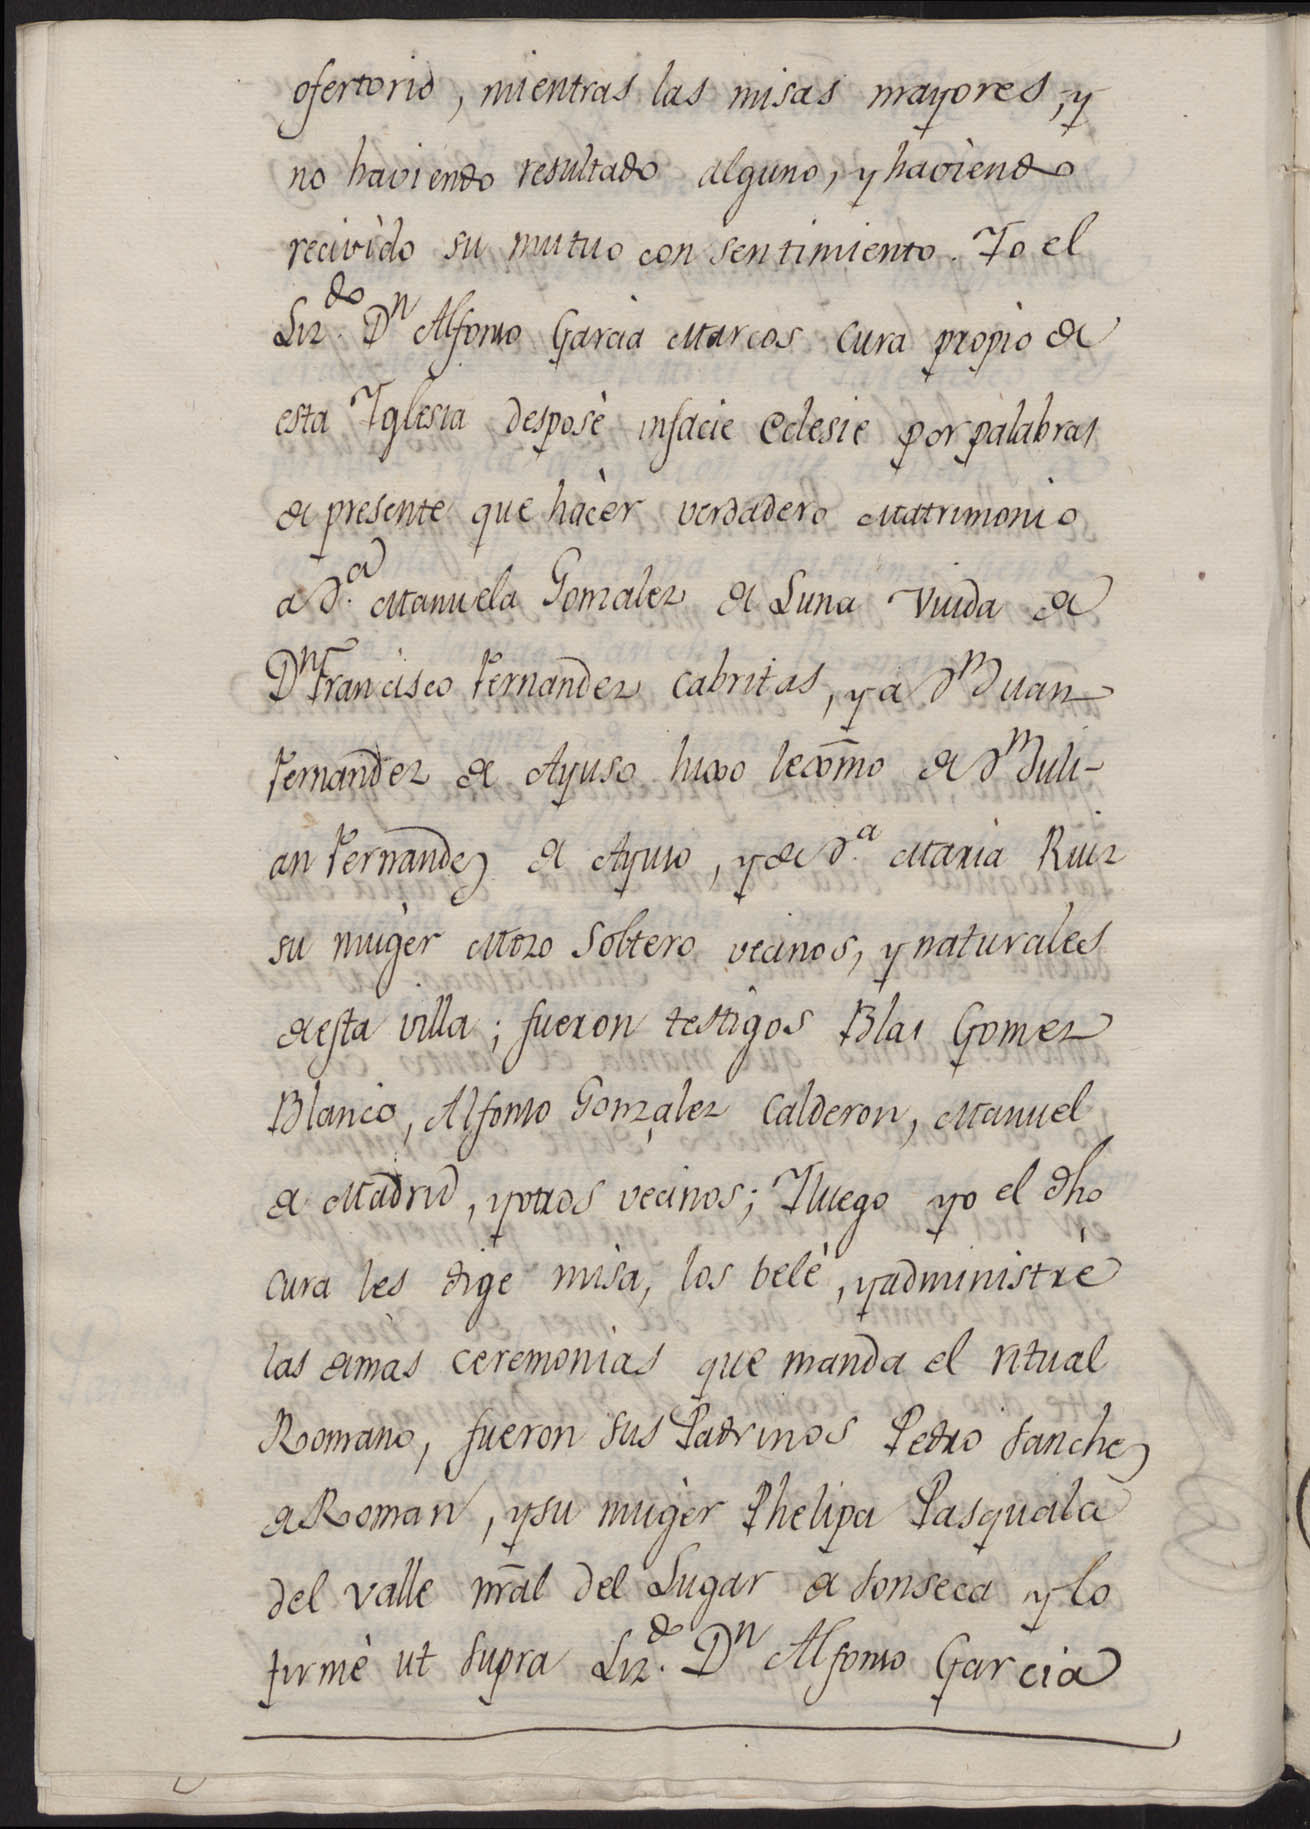 ofertorio, mientras las misas mayores, y
no haviendo resultado alguno, y haviendo
recivìdo su mutuo consentimiento. Yo el
Liz.do Dn Alfonso Garcia Marcos Cura propio de
esta Yglesia desposè infacie eclesie por palabras
de presente que hacèr verdadero Matrimonio
a d.a Manuela Gonzalez de Luna Viuda de
Dn Francisco Fernandez Cabritas, y a dn Juan
Fernandez de Ayuso hixo lexmo de dn Juli-
an Fernandez de Ayuso, y de d.a Maria Ruiz
su mugèr Mozo Soltero vecinos, y naturales
de esta villa; fueron testigos Blas Gomez
Blanco, Alfonso Gonzalez Calderon, Manuel
de Madrid, y otros vecinos; Yluego yo el dho
Cura les dige misa, los velè, y administrè
las demàs ceremonias que manda el ritual
Romano, fueron sus Padrinos Pedro Sanchez
de Roman, y su mugèr Phelipa Pasquala
del valle nral del Lugar de Sonseca y lo
firmè ut supra Liz.do Dn Alfonso Garcia